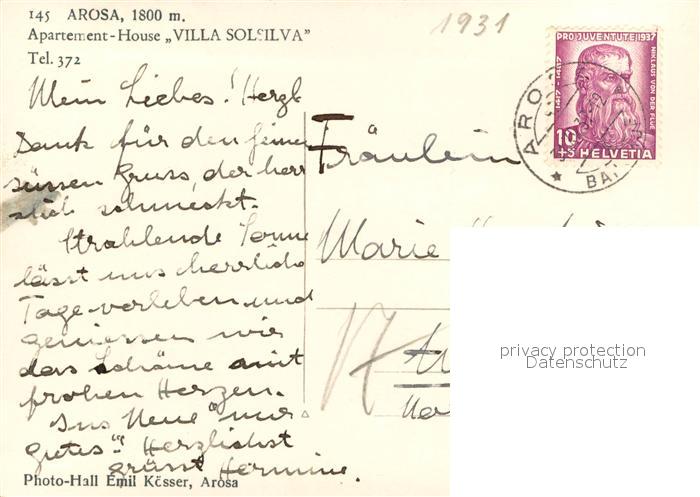 145 AROSA, 1800 m.
Apartement-House „VILLA SOLSILVA"
Tel. 372
1931
PRO JUVENTUTE 1937
NIKLAUS VON DER FLÜE
1417-1487
10
+5 HELVETIA
ARO
BAHN
Mein Liebes! Herzl
Dank für den feinen
süssen Gruss, der herr
zlich schmeckt.
Strahlende Sonne
lässt uns herrliche
Tage verleben und
geniessen wir
das Schöne mit
frohen Herzen.
Ins Neue "nur
gutes". Herzlichst
grüsst Hermine.
Fräulein
Marie
privacy protection
Datenschutz
Photo-Hall Emil Kösser, Arosa